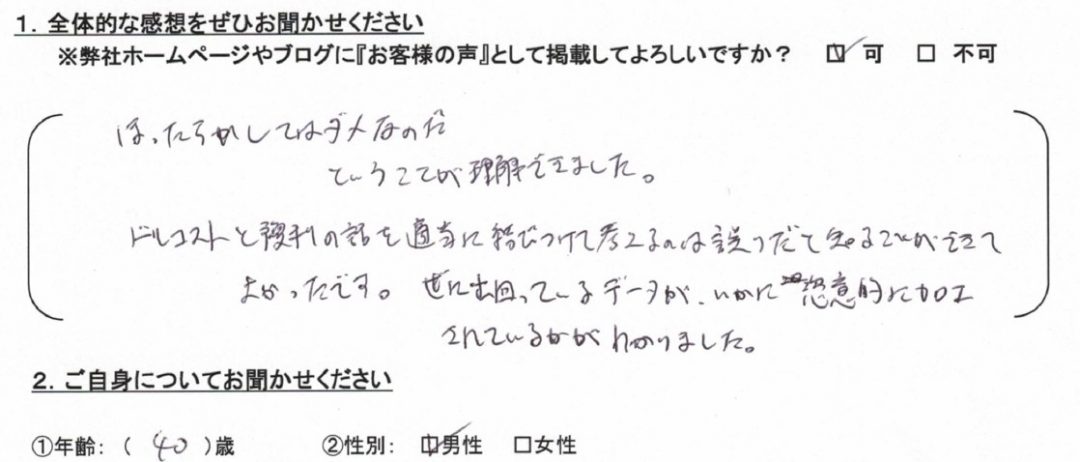 1．全体的な感想をぜひお聞かせください
※弊社ホームページやブログに『お客様の声』として掲載してよろしいですか？ ☑ 可 □ 不可
ほったらかしてはダメなのだ
ということが理解できました。
ドルコストと複利の話を適当に結びつけて考えるのは誤りだと知ることができて
よかったです。 世に出回っているデータが、いかに恣意的に加工
されているかがわかりました。
2．ご自身についてお聞かせください
①年齢：（ 40 ）歳 ②性別： ☑男性 □女性